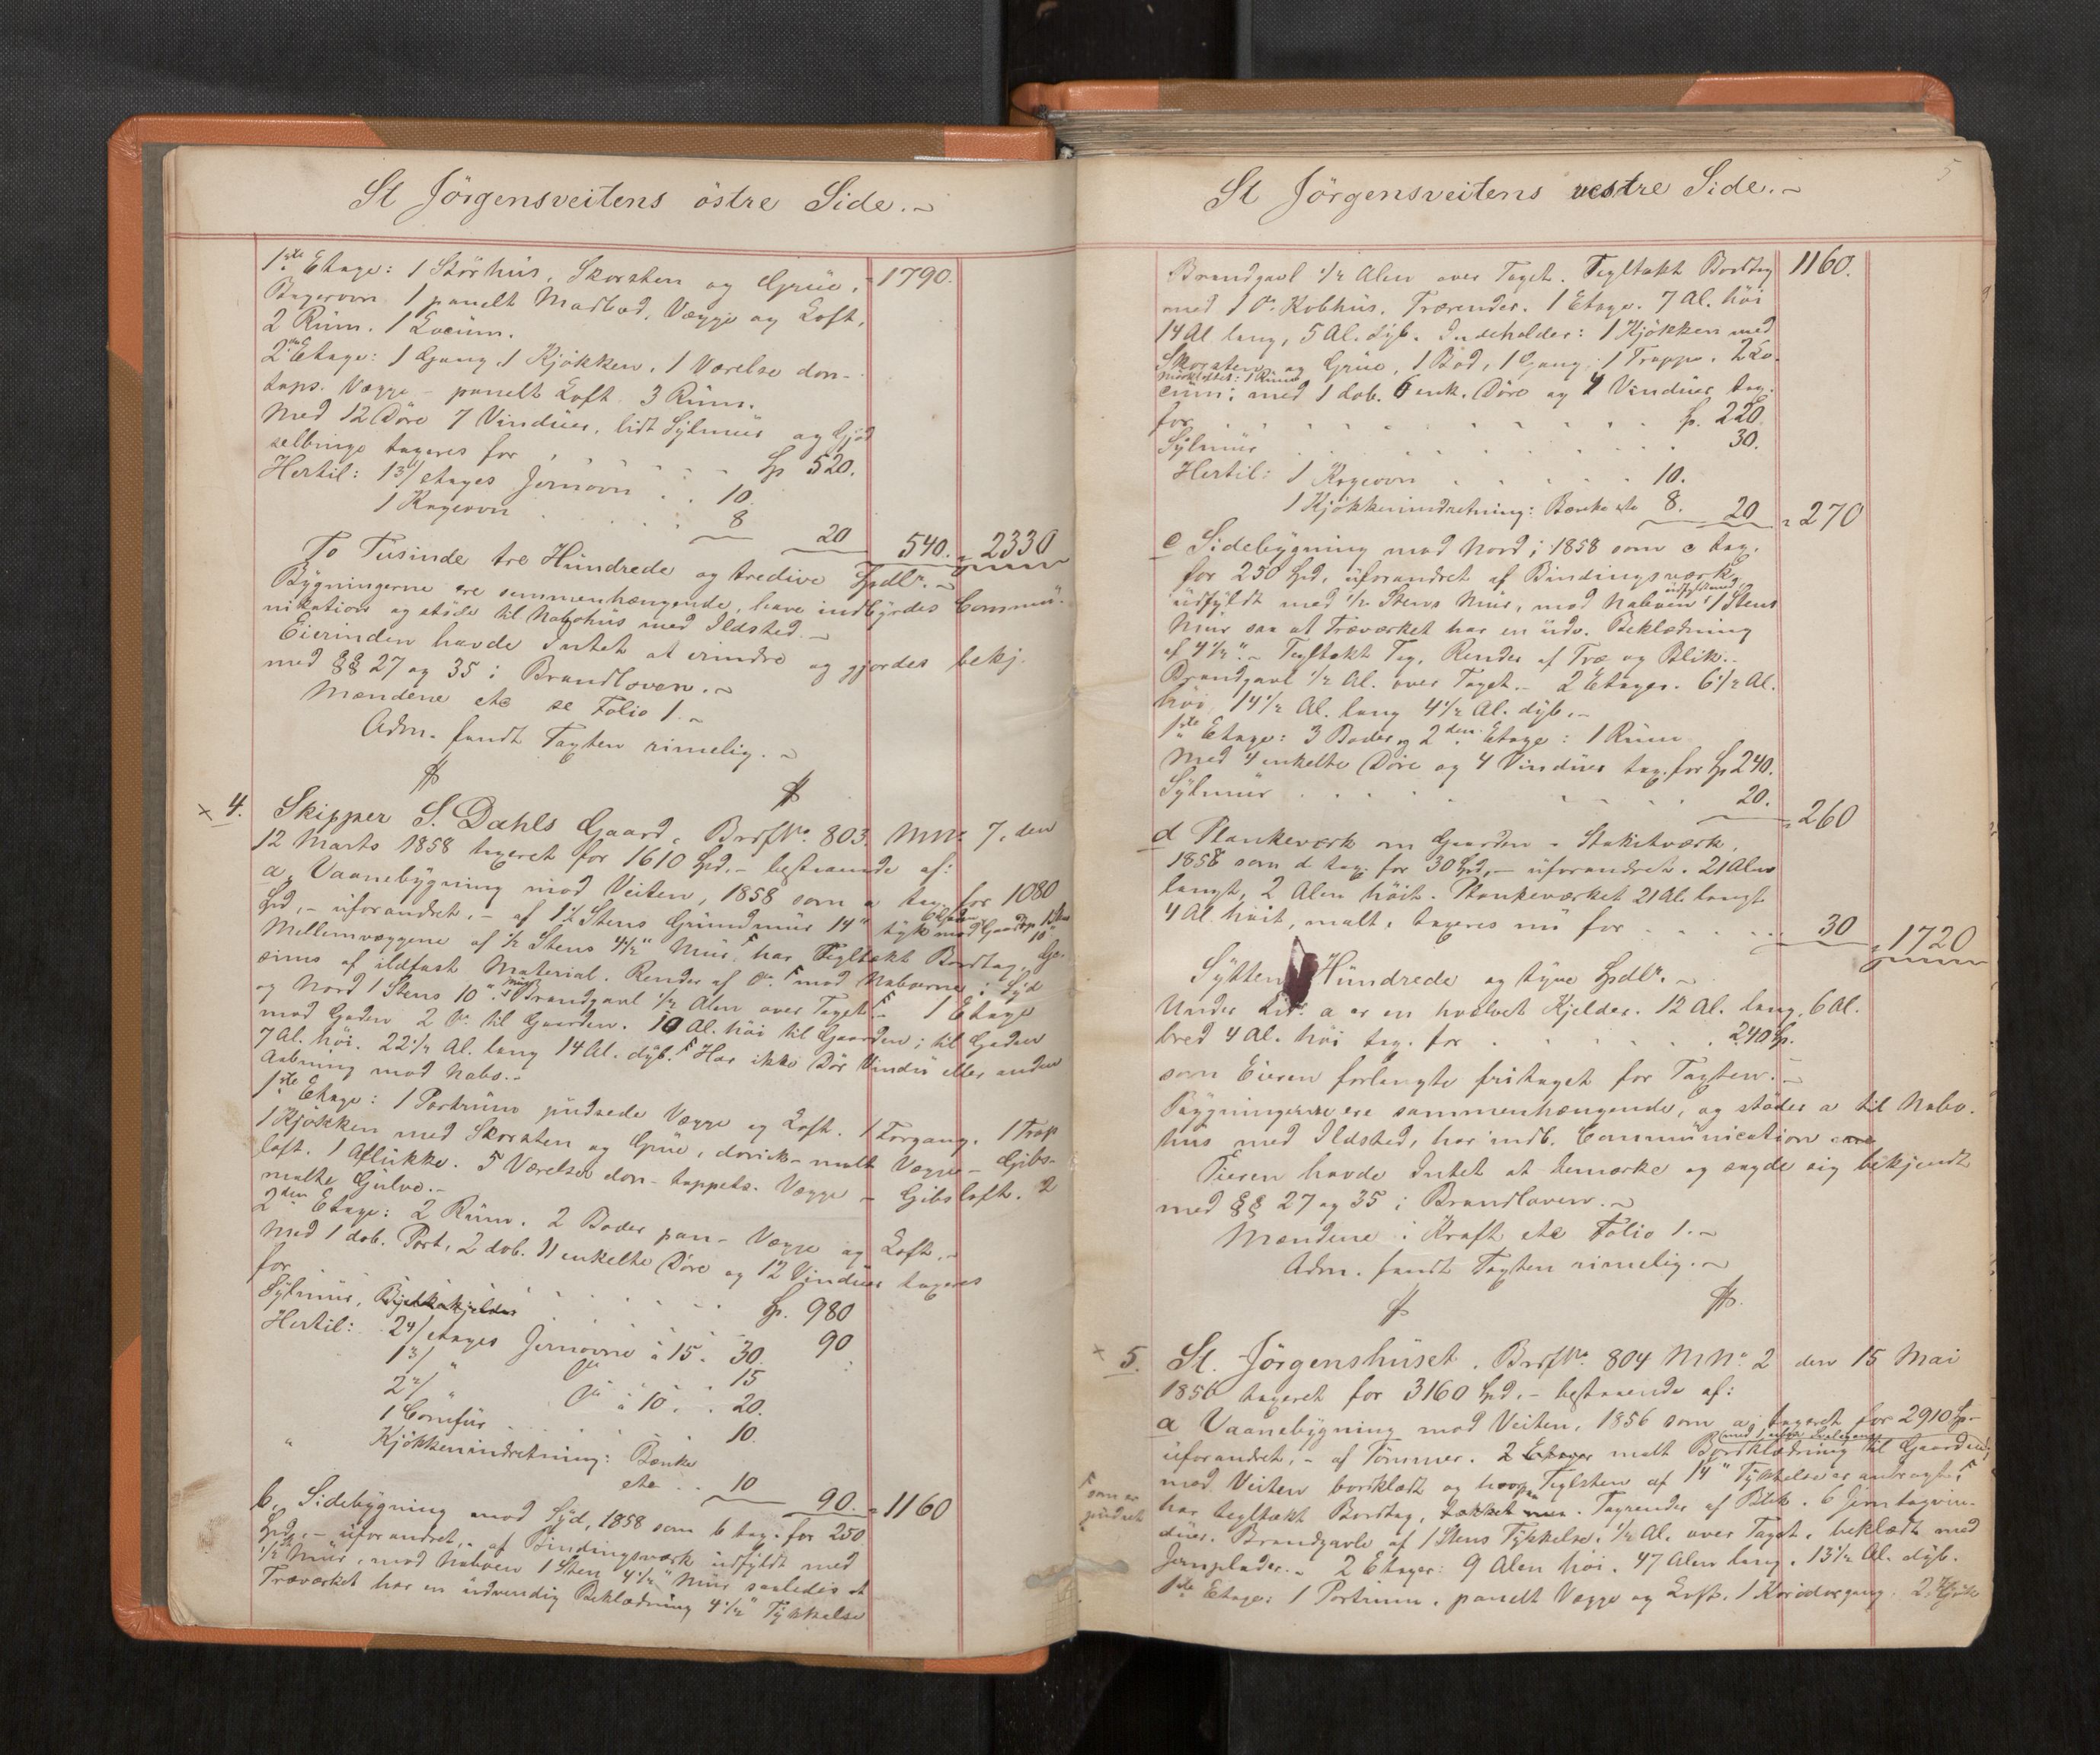 St Jörgensveitens östre Side.-
1ste Etage: 1 Störhus, Skorsten og Grüe, 1790.
Bagerovn 1 panelt Madbod, Vægge og Loft,
2 Rüm. 1 Locüm.
2den Etage: 1 Gang, 1 Kjökken, 1 Værelse don-
taps. Vægge - panelt Loft 3 Rüm.
Med 12 Döre 7 Vindüer, lidt Sylmür og Gjöd
selbinge taxeres for . . . . Sp 520.
Hertil: 1 3/ etages Jernovn . . 10.
1 Kagerovn . . . . 8 20 540. 2330
To Tusinde tre Hündrede og tredive Spdlr. -
Bygningerne ere sammenhængende, have indbyrdes Commü-
nikation og stöde til Nabohüs med Ildsted. -
Eierinden havde Intet at erindre og gjordes bekj.
med §§ 27 og 35 i Brandloven. -
Mændene etc se Folio 1. -
Adm. fandt Taxten rimelig. -
× 4. Skipper S. Dahls Gaard, Brdf No. 803. MNo. 7, den
12 Marts 1858 taxeret for 1610 Spd. - bestaaende af:
a, Vaanebygning mod Veiten, 1858 som a tax. for 1080
Spd, - üforandret, - af 1 1/2 Stens Gründmür 14" tyk mod Gaarden
Mellemvæggene af 1/2 Stens 4 1/2" Mür, har Tegltækt Bordtag, Ge-
sims af ildfast Material. Render af Do. mod Naboerne i Syd
og Nord 1 Stens 10" Mür Brandgavl 1/2 Alen over Taget. - 1 Etage
mod Gaden 2 Do. til Gaarden. 10 Al. höi til Gaarden; til Gaden
7 Al. höi. 22 1/2 Al. lang 14 Al. dyb. Har ikke Dör Vindü eller anden
Aabning mod Nabo. -
1ste Etage: 1 Portrüm püdsede Vægge og Loft. 1 Forgang. 1 Trap
1 Kjökken med Skorsten og Grüe, dorisk - malt Vægge - Gibs-
loft. 1 Aflükke. 5 Værelser don - tappets. Vægge - Gibsloft. 2
malte Gülve. -
2den Etage: 2 Rüm. 2 Boder pan - Vægge og Loft. -
Med 1 dob. Port, 2 dob. 11 enkelte Döre og 12 Vindüer taxeres
for . . . . . Sp. 980
Sylmür, Bjelkekjelder . . . . 90
Hertil: 2 4/ etages Jernovne à 15. 30.
1 3/ " Do . . 15
2 2/ " Do à 10. . 20.
1 Comfür . . . . 10.
" Kjökkenindretning: Bænke
etc . . 10 90. 1160
b, Sidebygning mod Syd, 1858 som b tax. for 250
Spd, - üforandret, - af Bindingsværk üdfyldt med
1/2 Mür, mod Naboen 1 Sten 4 1/2" Mür saaledes at
Træværket har en üdvendig Beklædning 4 1/2" Tykkelse
5
St Jörgensveitens vestre Side. -
Brandgavl 1/2 Alen over Taget. Tegltækt Bordtag 1160.
med 1 Do. Kobhüs. Trærender. 1 Etage. 7 Al. höi
14 Al. lang, 5 Al. dyb. Indeholder: 1 Kjökken med
Skorsten og Grüe, 1 Bod, 1 Gang, 1 Trappe. 2 Lo-
Mörkloftet: 1 Rüm
cüm; med 1 dob. 6 enk. Döre og 4 Vindüer tax.
for . . . . . . Sp. 220.
Sylmür . . . . . . 30.
Hertil: 1 Kagerovn . . . . 10.
1 Kjökkenindretning: Bænke etc 8. 20 270
c Sidebygning mod Nord; 1858 som c tax.
for 250 Spd, üforandret af Bindingsværk,
üdfyldt med 1/2 Stens Mür, mod Naboen 1 Stens
Mür saa at Træværket har en üdv. Beklædning
af 4 1/2". - Tegltækt Tag, Render af Træ og Blik. -
Brandgavl 1/2 Al. over Taget. - 2 Etager. 6 1/2 Al.
höi, 14 1/2 Al. lang 4 1/2 Al. dyb. -
1ste Etage: 3 Boder og 2den Etage: 1 Rüm
Med 4 enkelte Döre og 4 Vindüer tax. for Sp 240.
Sylmür . . . . . 20. 260
d Plankeværk om Gaarden - Stakitværk,
1858 som d tax. for 30 Spd, - üforandret. 21 Alen
langt, 2 Alen höit. Plankeværket 21 Al. langt
4 Al. höit, malt, taxeres nü for . . . . 30 1720
Sytten Hündrede og tyve Spdlr. -
Under Litr. a er en hvælvet Kjelder. 12 Al. lang, 6 Al.
bred 4 Al. höi tax. for . . . . . 240 Sp.
som Eieren forlangte fritaget for Taxten. -
Bygningerne ere sammenhængende, og stöder a til Nabo-
hüs med Ildsted, har indb. Communication
Eieren havde Intet at bemærke og sagde sig bekjendt
med §§ 27 og 35 i Brandloven. -
Mændene i Kraft etc Folio 1. -
Adm. fandt Taxten rimelig. -
× 5. St. Jörgenshüset. Brdf No. 804 MNo. 2 den 15 Mai
1856 taxeret for 3160 Spd, - bestaaende af:
a Vaanebygning mod Veiten, 1856 som a, taxeret for 2910 Sp-
üforandret, - af Tömmer. 2 Etager malt Bordklædning til Gaarden;
mod Veiten bordklædt og hvorpaa Teglsten af 14" Tykkelse er anbragt,
som er
püdset
har tegltækt Bordtag, Tagrender af Blik. 6 Jerntagvin-
düer. Brandgavle af 1 Stens Tykkelse, 1/2 Al. over Taget, beklædt med
Jernplader. - 2 Etager: 9 Alen höi. 47 Alen lang. 13 1/2 Al. dyb.
1ste Etage: 1 Portrum, panelt Vægge og Loft, 1 Koridorgang. 2